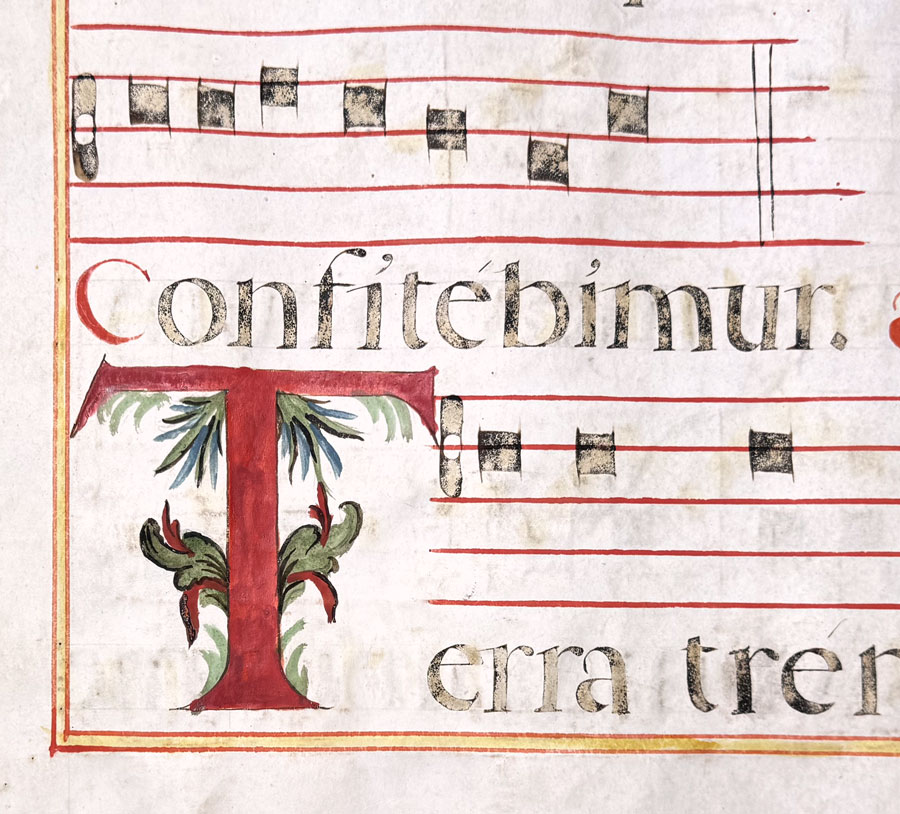 Confitébimur.
Terra tré